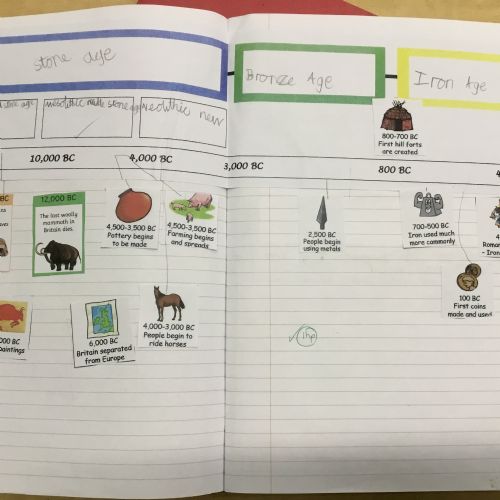 stone age
Bronze Age
Iron Age
stone age
mesolithic middle stone age
neolithic new
10,000 BC
4,000 BC
3,000 BC
800 BC
800-700 BC
First hill forts
are created
BC
12,000 BC
The last woolly
mammoth in
Britain dies.
4,500-3,500 BC
Pottery begins
to be made
4,500-3,500 BC
Farming begins
and spreads
2,500 BC
People begin
using metals
700-500 BC
Iron used much
more commonly
Roman
- Iron
100 BC
First coins
made and used
000 BC
Paintings
6,000 BC
Britain separated
from Europe
4,000-3,000 BC
People begin to
ride horses